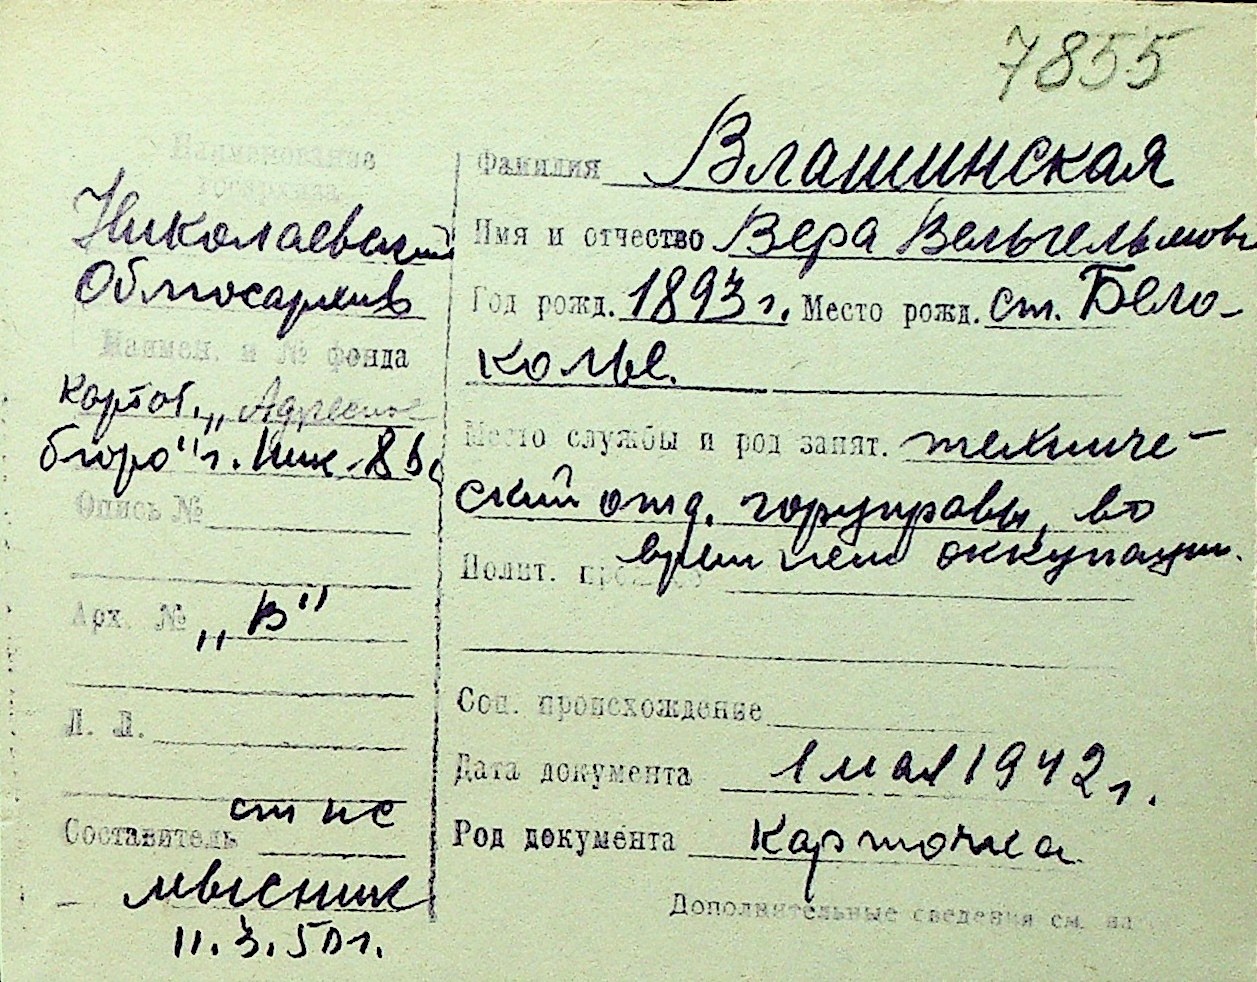 7855
Наименование
госархива
Николаевский
Облгосархив
Наимен. и № фонда
картот. „Адресное
бюро" г. Ник-
Опись №
Арх. № „В"
Л. Л.
Составитель ст нс
11.3.50 г.
Фамилия Влашинская
Имя и отчество Вера Вельгельмов
Год рожд. 1893 г. Место рожд. ст. Бело-
колье.
Место службы и род занят. техниче-
ский отд. горуправы, во
время нем оккупации.
Полит. прошлое
Соц. происхождение
Дата документа 1 мая 1942 г.
Род документа Карточка
Дополнительные сведения см. на